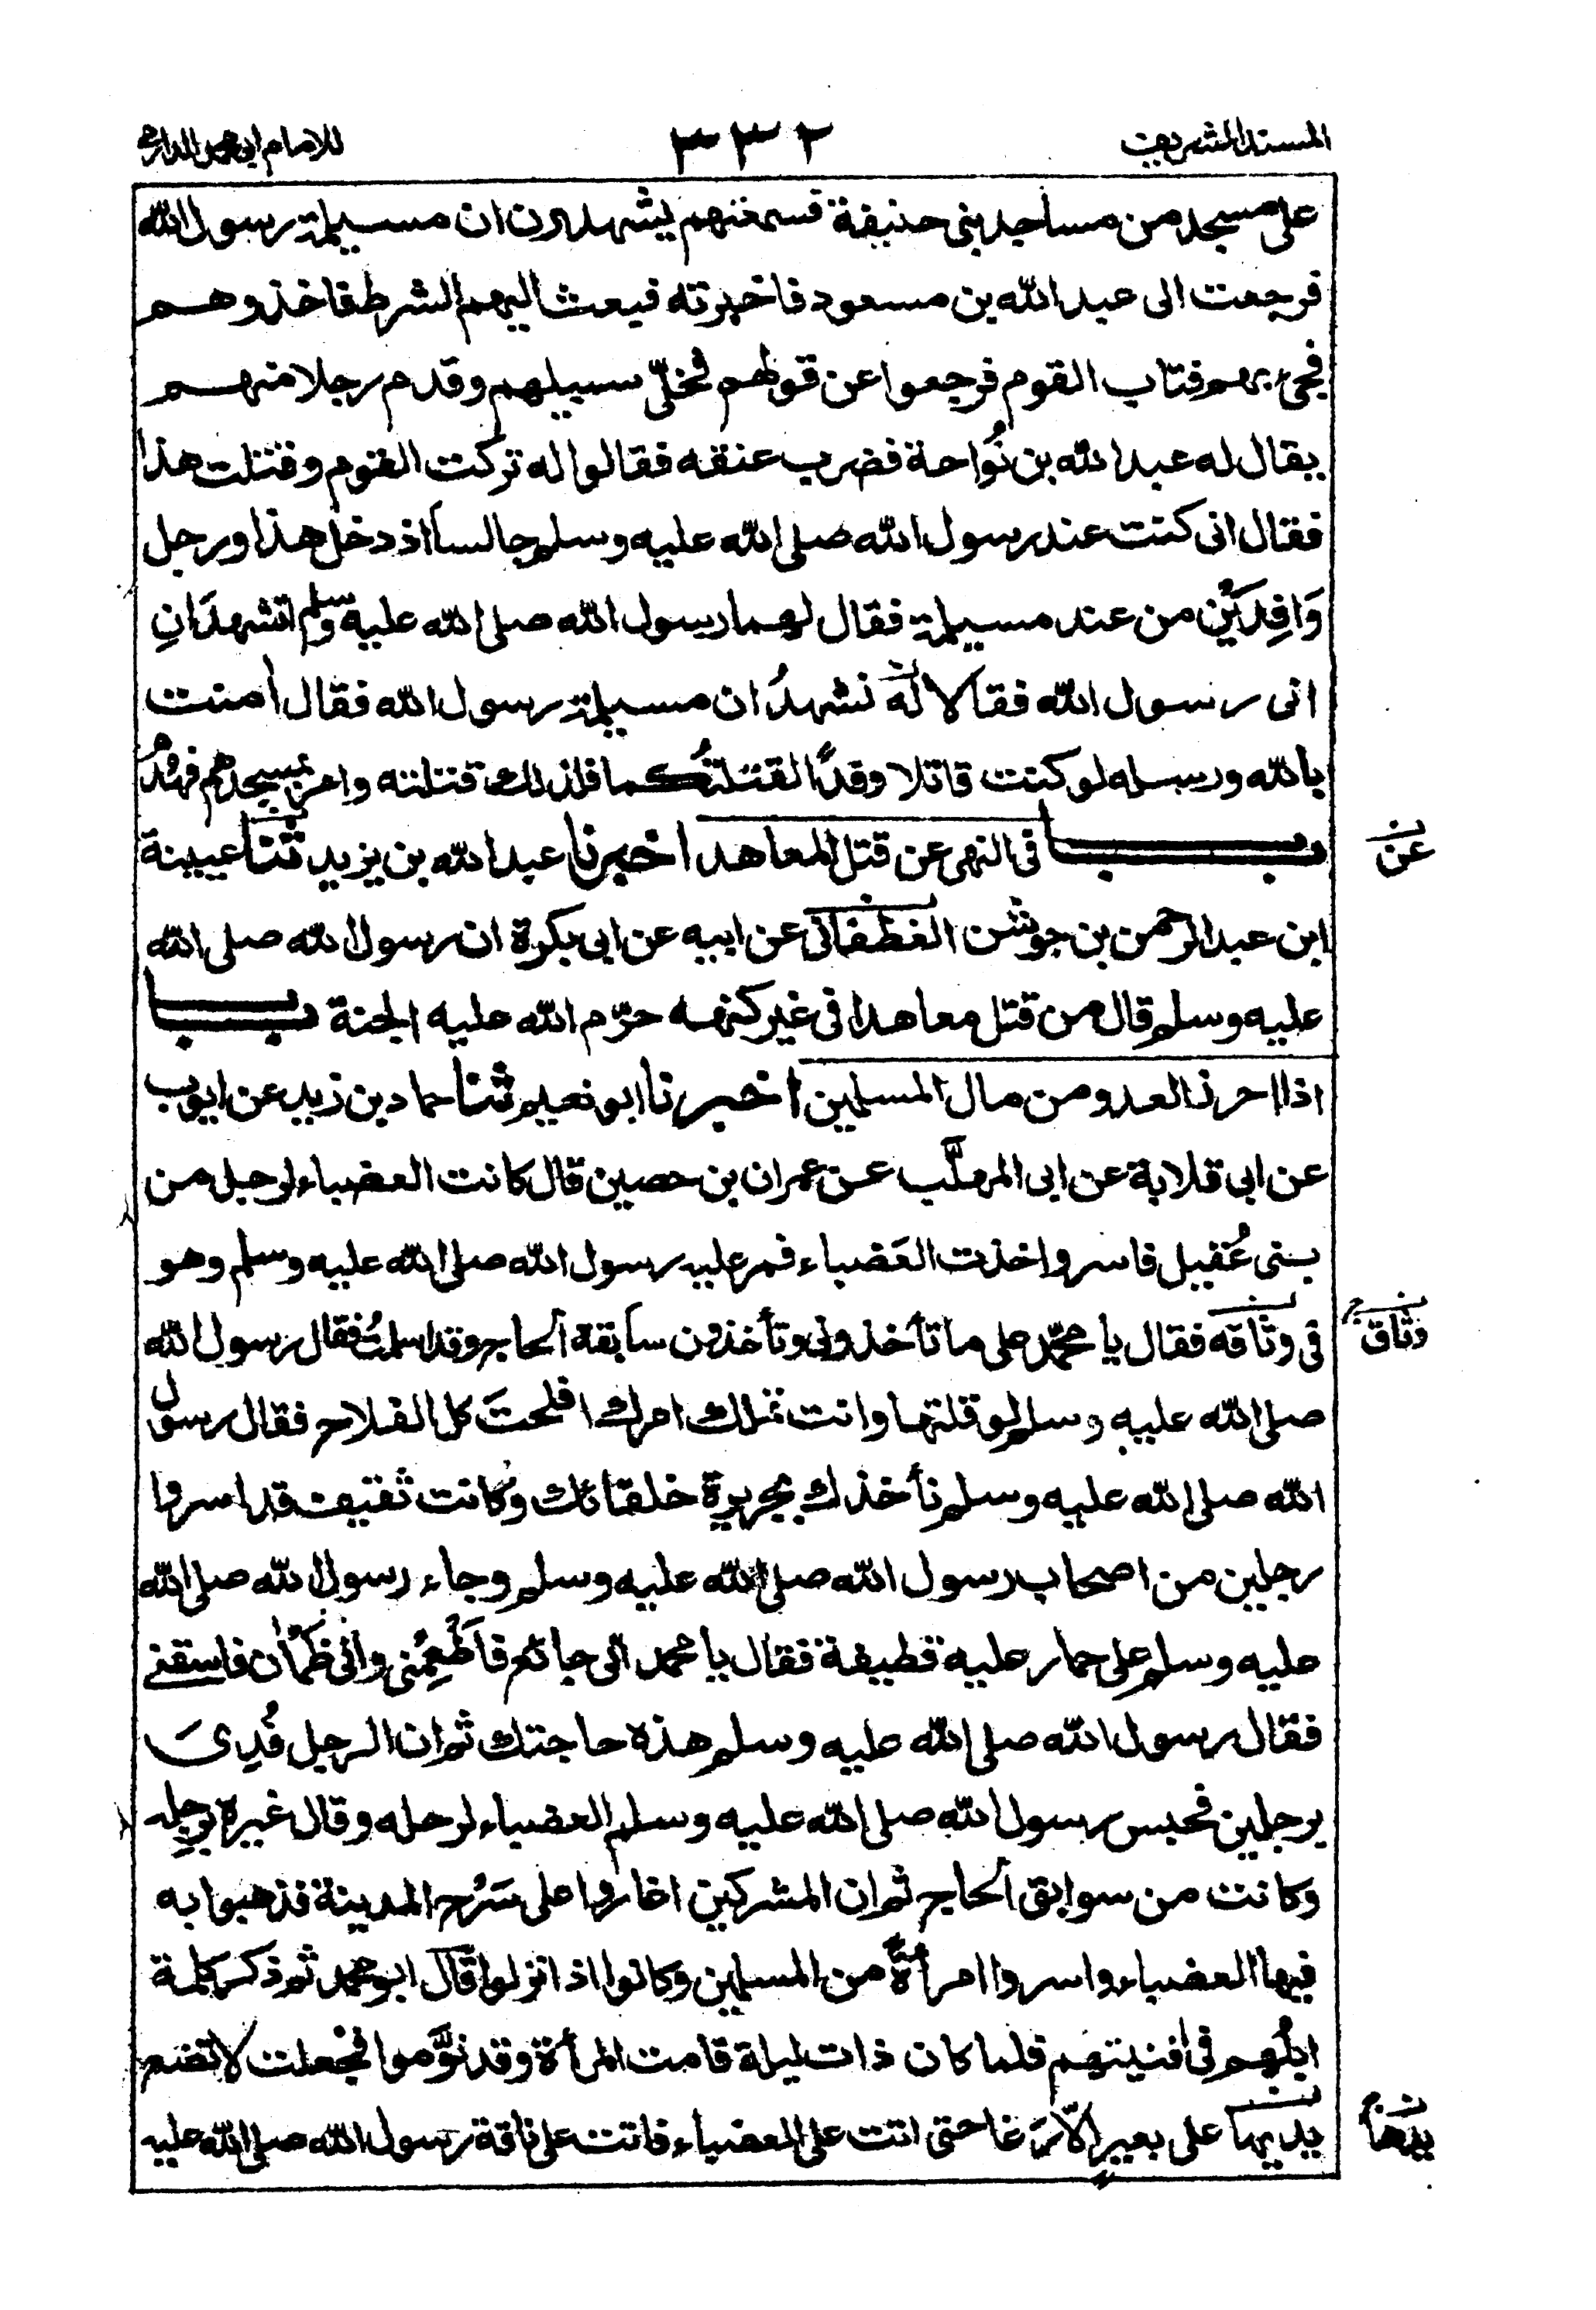 المسند الشريف
٣٣٢
للامام ابى محمد الدارمى
على مسجد من مساجد بنى حنيفة فسمعتهم يشهدون ان مسيلمة رسول الله
فرجعت الى عبد الله بن مسعود فاخبرته فبعث اليهم الشرط فاخذوهم
فجئ بهم فتاب القوم فرجعوا عن قولهم فخلّى سبيلهم وقدم رجلا منهم
يقال له عبد الله بن نُواحة فضرب عنقه فقالوا له تركت القوم وقتلت هذا
فقال انى كنت عند رسول الله صلى الله عليه وسلم جالسا اذ دخل هذا ورجل
وَافِدَيْن من عند مسيلمة فقال لهما رسول الله صلى الله عليه وسلم اتشهدَانِ
انى رسول الله فقالا له نشهدُ ان مسيلمة رسول الله فقال اٰمنت
بالله ورسله لو كنت قاتلا وفدًا لقتلتُكما فلذلك قتلته وامر بمسجدهم فهُدُم
بــــاب فى النهى عن قتل المعاهد اخبرنا عبد الله بن يزيد ثنا عيينة
عن
ابن عبد الرحمن بن جوشن الغطفانى عن ابيه عن ابى بكرة ان رسول الله صلى الله
عليه وسلم قال من قتل معاهدا فى غير كنهه حرّم الله عليه الجنة بــاب
اذا احرز العدو من مال المسلمين اخبرنا ابو نعيم ثنا حماد بن زيد عن ايوب
عن ابى قلابة عن ابى المهلَّب عن عمران بن حصين قال كانت العضباء لرجل من
بنى عُقيل فاسر واخذت العَضباء فمر عليه رسول الله صلى الله عليه وسلم وهو
فى وثاقه فقال يا محمّد على ما تأخذونى وتأخذون سابقة الحاج وقد اسلمتُ فقال رسول الله
وثاق
صلى الله عليه وسلم لو قلتها وانت تملك امرك افلحتَ كل الفلاح فقال رسول
الله صلى الله عليه وسلم نأخذك بجريرة حلفائك وكانت ثقيف قد اسروا
رجلين من اصحاب رسول الله صلى الله عليه وسلم وجاء رسول الله صلى الله
عليه وسلم على حمار عليه قطيفة فقال يا محمد انى جائع فاَطْعِمْنى وانى ظمأن فاسقنى
فقال رسول الله صلى الله عليه وسلم هذه حاجتك ثم ان الرجل فُدِىَ
برجلين فحبس رسول الله صلى الله عليه وسلم العضباء لرحله وقال غيره
وكانت من سوابق الحاج ثم ان المشركين اغاروا على سَرْح المدينة فذهبوا به
فيها العضباء واسروا امرأةً من المسلمين وكانوا اذا نزلوا قال ابو محمد ثم ذكر كلمة
ابلُهم فى افنيتهم فلما كان ذات ليلة قامت المرأة وقد نوَّموا فجعلت لا تضع
يديها على بعير الّا رَغا حتى اتت على العضباء فاتت على ناقة رسول الله صلى الله عليه
يدها